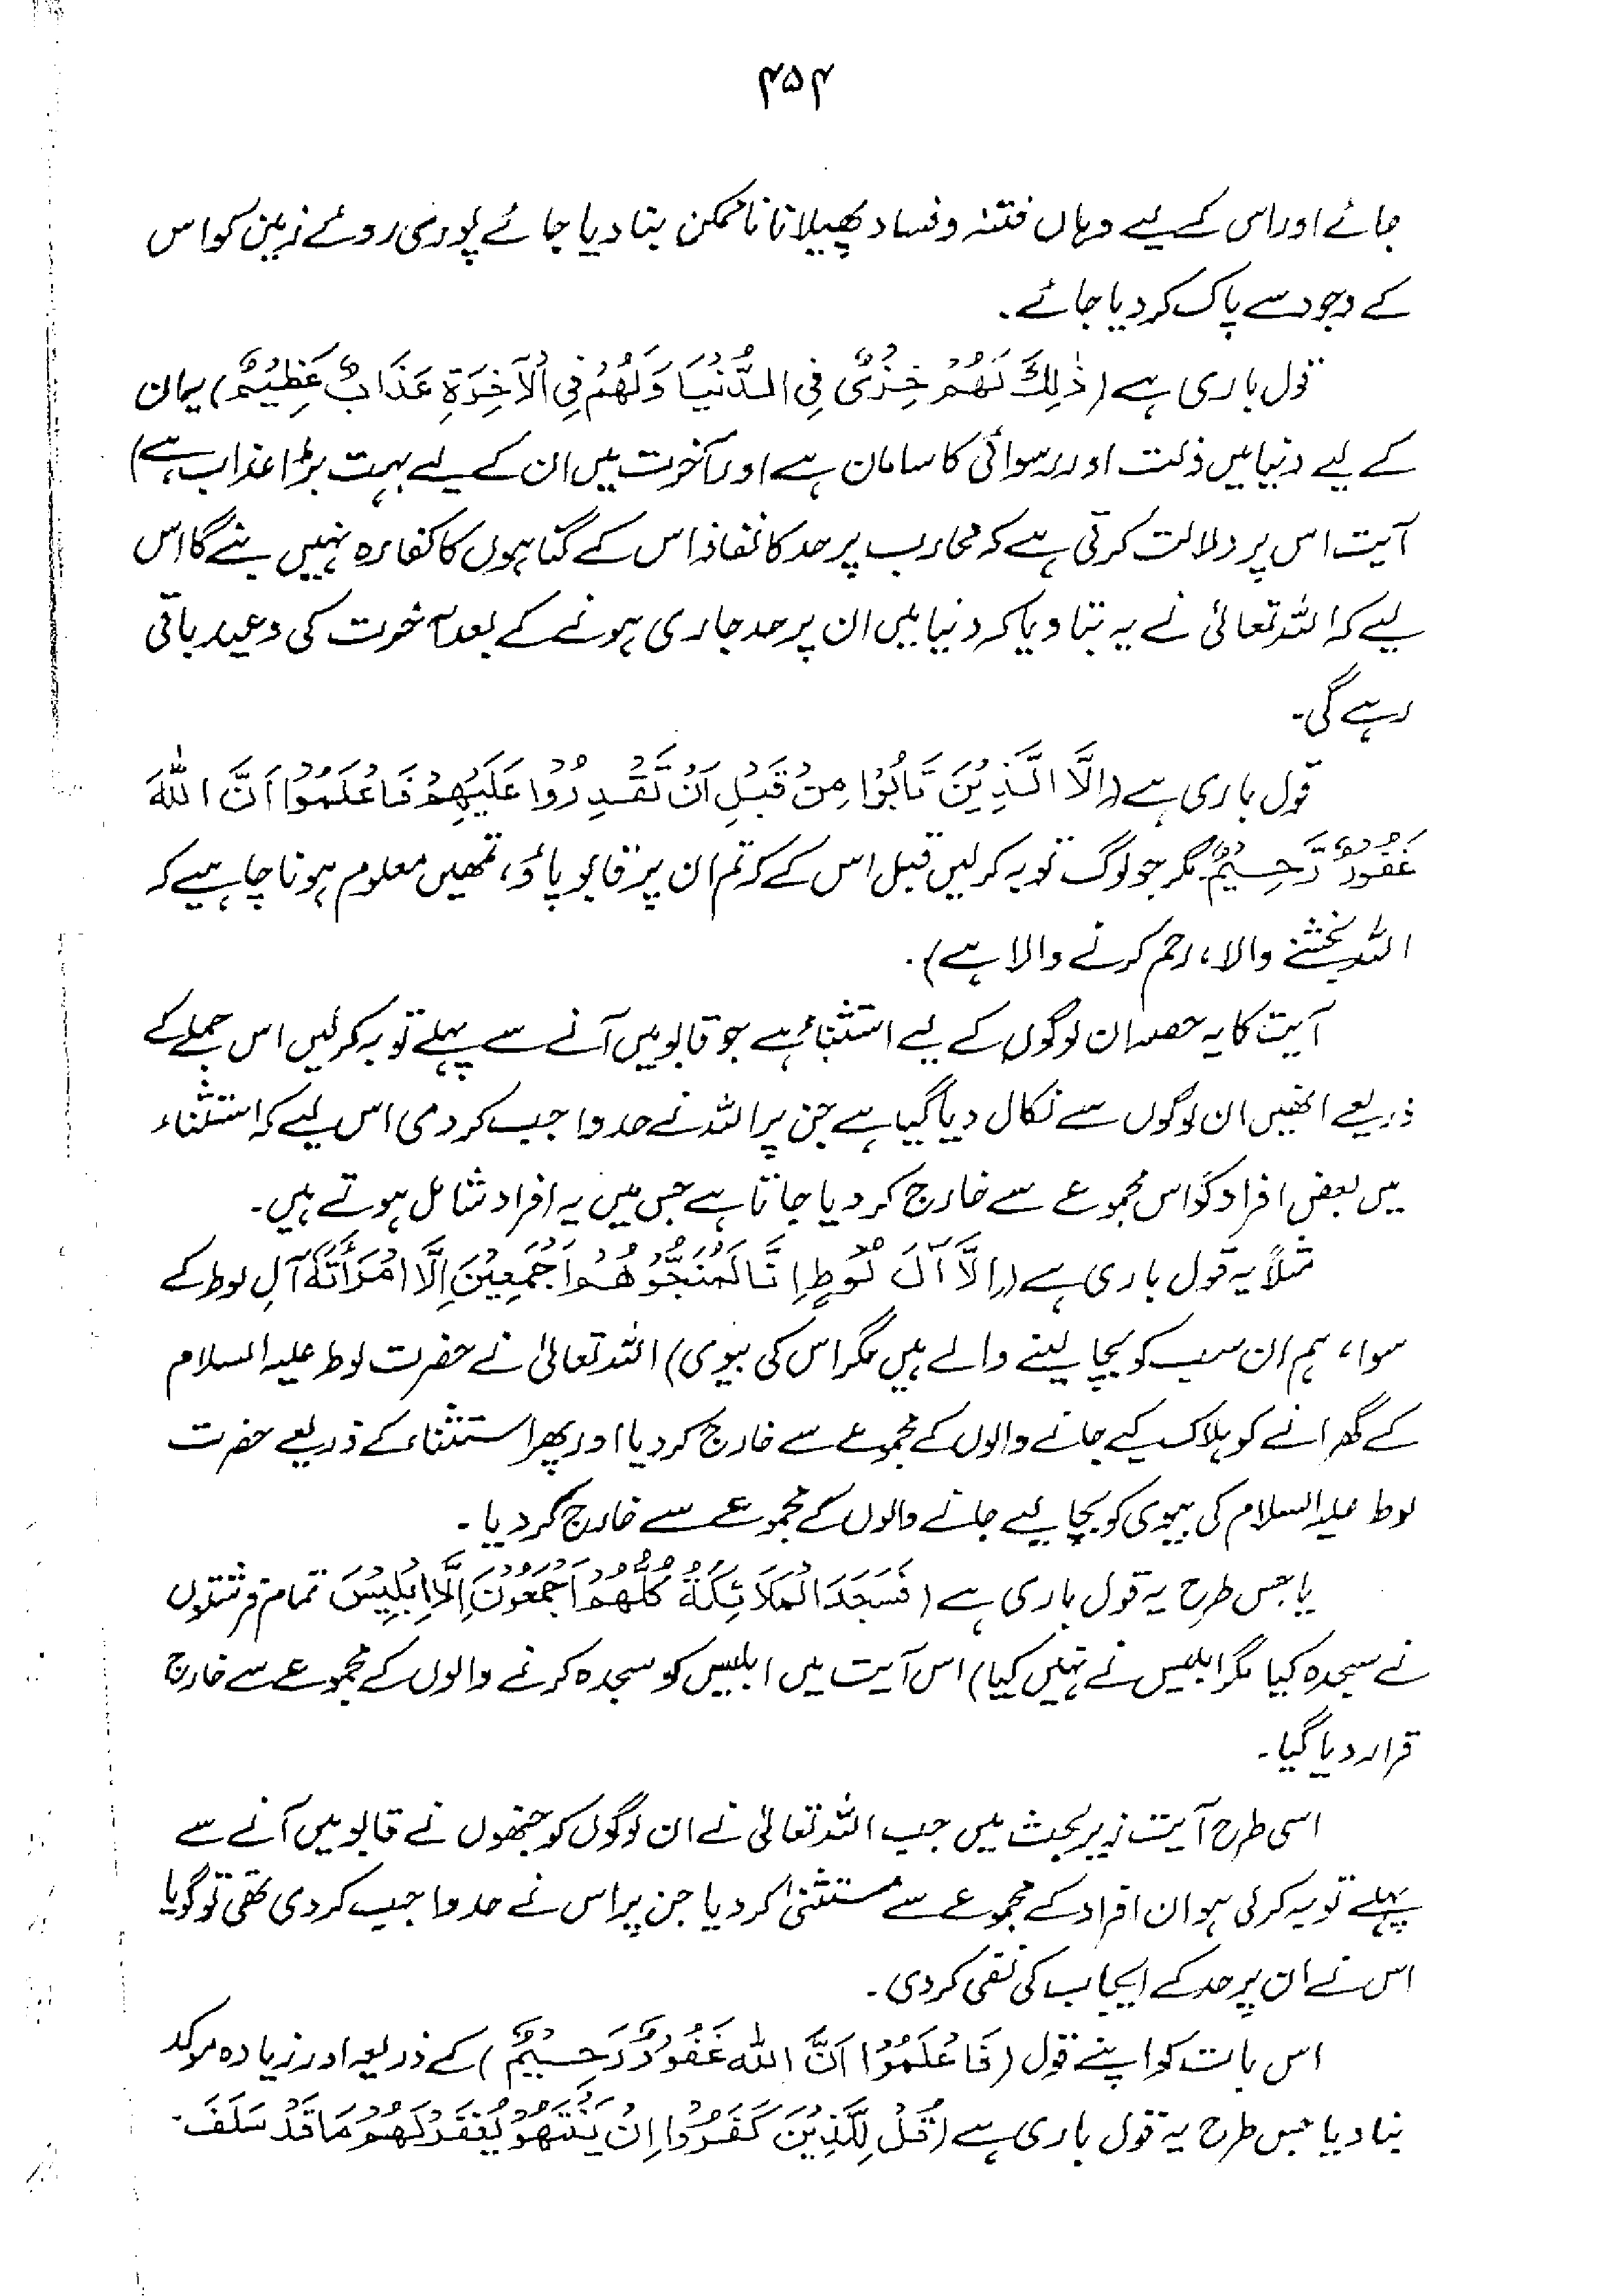 ۴۵۴
جائے اور اس کے لیے وہاں فتنہ و فساد پھیلانا ناممکن بنا دیا جائے پوری روئے زمین کو اس
کے وجود سے پاک کر دیا جائے.
قول باری ہے (ذٰلِكَ لَهُمْ خِزْيٌ فِي الدُّنْيَا وَلَهُمْ فِي الْآخِرَةِ عَذَابٌ عَظِيْمٌ) یہ ان
کے لیے دنیا میں ذلت اور رسوائی کا سامان ہے اور آخرت میں ان کے لیے بہت بڑا عذاب ہے)
آیت اس پر دلالت کرتی ہے کہ محارب پر حد کا نفاذ اس کے گناہوں کا کفارہ نہیں بنے گا اس
لیے کہ اللہ تعالیٰ نے یہ بتا دیا کہ دنیا میں ان پر حد جاری ہونے کے بعد آخرت کی وعید باقی
رہے گی۔
قول باری ہے (اِلَّا الَّذِيْنَ تَابُوْا مِنْ قَبْلِ اَنْ تَقْدِرُوْا عَلَيْهِمْ فَاعْلَمُوْا اَنَّ اللهَ
غَفُوْرٌ رَّحِيْمٌ۔ مگر جو لوگ توبہ کر لیں قبل اس کے کہ تم ان پر قابو پاؤ، تمھیں معلوم ہونا چاہیے کہ
اللہ بخشنے والا، رحم کرنے والا ہے).
آیت کا یہ حصہ ان لوگوں کے لیے استثناء ہے جو قابو میں آنے سے پہلے توبہ کر لیں اس جملے کے
ذریعے انھیں ان لوگوں سے نکال دیا گیا ہے جن پر اللہ نے حد واجب کر دی اس لیے کہ استثناء
میں بعض افراد کو اس مجموعے سے خارج کر دیا جاتا ہے جس میں یہ افراد شامل ہوتے ہیں۔
مثلاً یہ قول باری ہے (اِلَّا آلَ لُوْطٍ اِنَّا لَمُنَجُّوْهُمْ اَجْمَعِيْنَ اِلَّا امْرَأَتَهٗ آلِ لوط کے
سوا، ہم ان سب کو بچا لینے والے ہیں مگر اس کی بیوی) اللہ تعالیٰ نے حضرت لوط علیہ السلام
کے گھرانے کو ہلاک کیے جانے والوں کے مجموعے سے خارج کر دیا اور پھر استثناء کے ذریعے حضرت
لوط علیہ السلام کی بیوی کو بچا لیے جانے والوں کے مجموعے سے خارج کر دیا۔
یا جس طرح یہ قول باری ہے (فَسَجَدَ الْمَلَائِكَةُ كُلُّهُمْ اَجْمَعُوْنَ اِلَّا اِبْلِيْسَ تمام فرشتوں
نے سجدہ کیا مگر ابلیس نے نہیں کیا) اس آیت میں ابلیس کو سجدہ کرنے والوں کے مجموعے سے خارج
قرار دیا گیا۔
اسی طرح آیت زیر بحث میں جب اللہ تعالیٰ نے ان لوگوں کو جنھوں نے قابو میں آنے سے
پہلے توبہ کر لی ہو ان افراد کے مجموعے سے مستثنیٰ کر دیا جن پر اس نے حد واجب کر دی تھی تو گویا
اس نے ان پر حد کے ایجاب کی نفی کر دی۔
اس بات کو اپنے قول (فَاعْلَمُوْا اَنَّ اللهَ غَفُوْرٌ رَّحِيْمٌ) کے ذریعہ اور زیادہ موکد
بنا دیا جس طرح یہ قول باری ہے (قُلْ لِلَّذِيْنَ كَفَرُوْا اِنْ يَنْتَهُوْا يُغْفَرْ لَهُمْ مَا قَدْ سَلَفَ۔